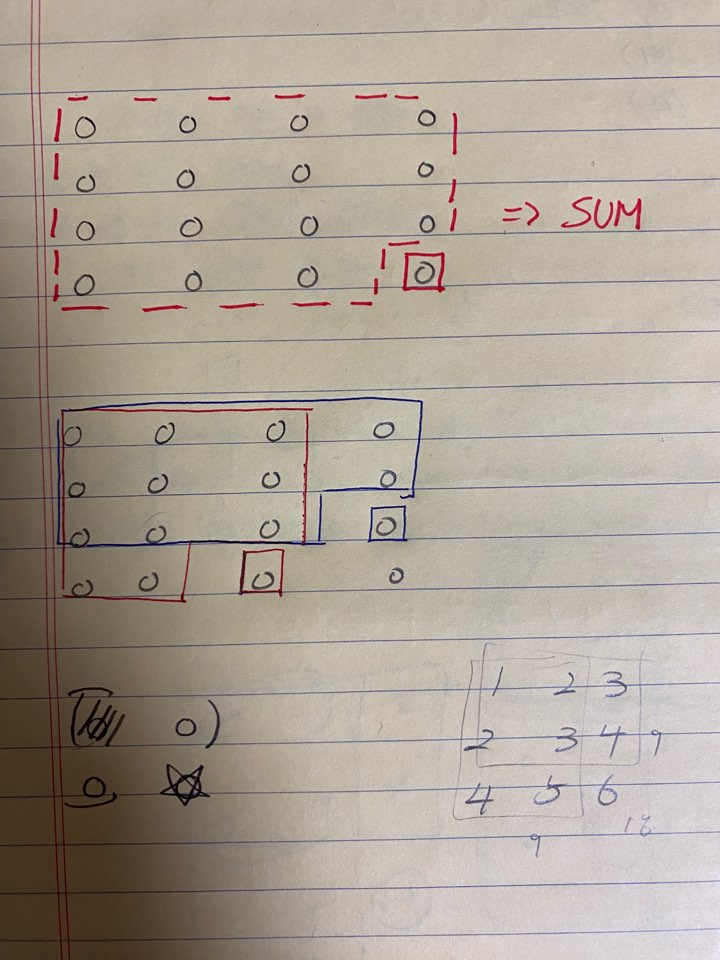 0 0 0 0
0 0 0 0
0 0 0 0 => SUM
0 0 0 0
0 0 0 0
0 0 0 0
0 0 0 0
0 0 0 0
( 0 )
0
1 2 3
2 3 4 9
4 5 6
9